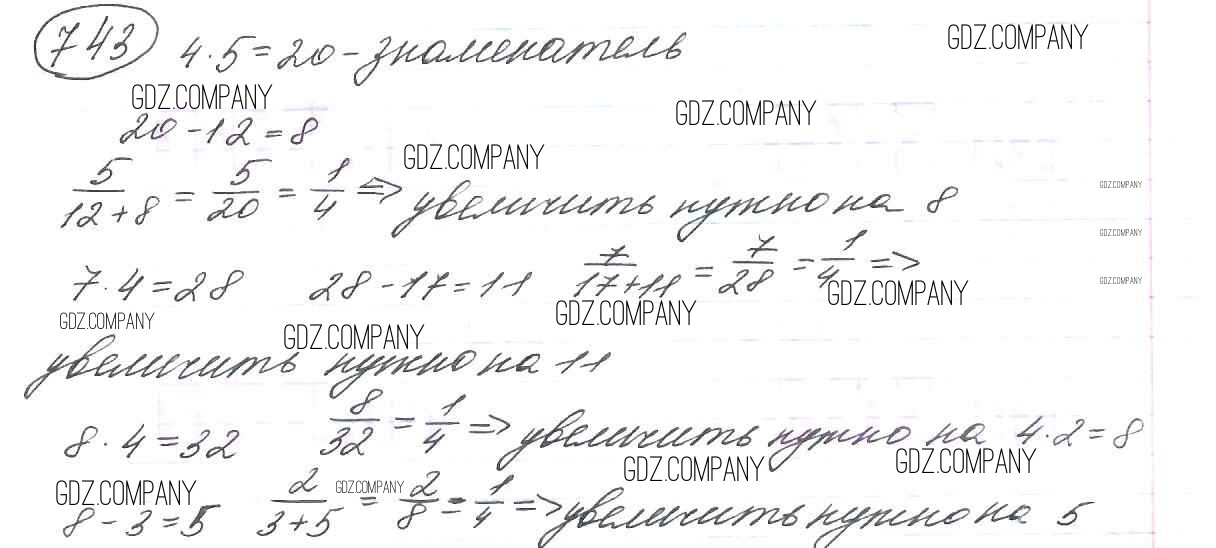 743 4·5=20-знаменатель GDZ.COMPANY
GDZ.COMPANY GDZ.COMPANY
20-12=8 GDZ.COMPANY
5/(12+8) = 5/20 = 1/4 => увеличить нужно на 8 GDZ.COMPANY
GDZ.COMPANY
7·4=28 28-17=11 7/(17+11) = 7/28 = 1/4 => GDZ.COMPANY
GDZ.COMPANY GDZ.COMPANY
GDZ.COMPANY GDZ.COMPANY
увеличить нужно на 11
8·4=32 8/32 = 1/4 => увеличить нужно на 4·2=8
GDZ.COMPANY GDZ.COMPANY GDZ.COMPANY GDZ.COMPANY
8-3=5 2/(3+5) = 2/8 = 1/4 => увеличить нужно на 5